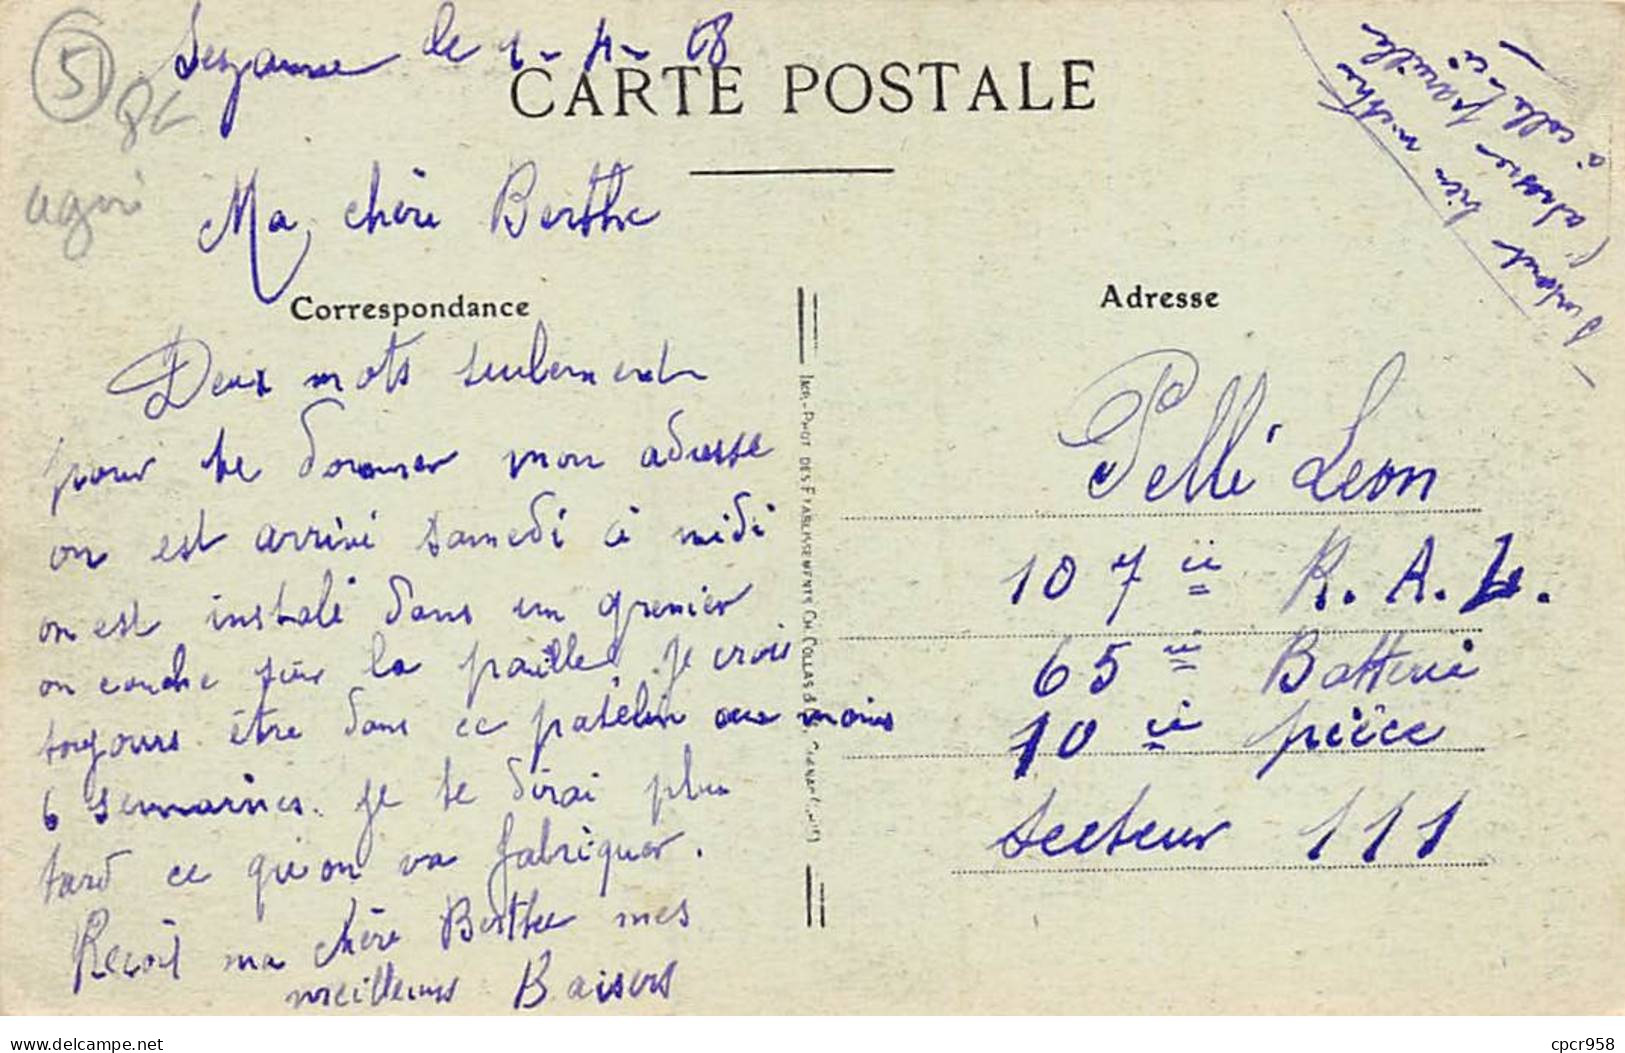 51
Sezanne le 1-4-18
CARTE POSTALE
Ma chère Berthe
Correspondance
Deux mots seulement
pour te donner mon adresse
on est arrivé samedi à midi
on est instalé dans un grenier
on couche sur la paille je crois
toujours être dans ce patelin aux moins
6 semaines. Je te dirai plus
tard ce qu'on va fabriquer.
Reçoit ma chère Berthe mes
meilleurs Baisers
IMP.-PHOT DES ETABLISSEMENTS CH. COLLAS &
Adresse
Pellé Leon
107è R.A.L.
65è Batterie
10è pièce
secteur 111
bien mettre
l'adresse pareille
à celle ci
www.delcampe.net
cpcr958